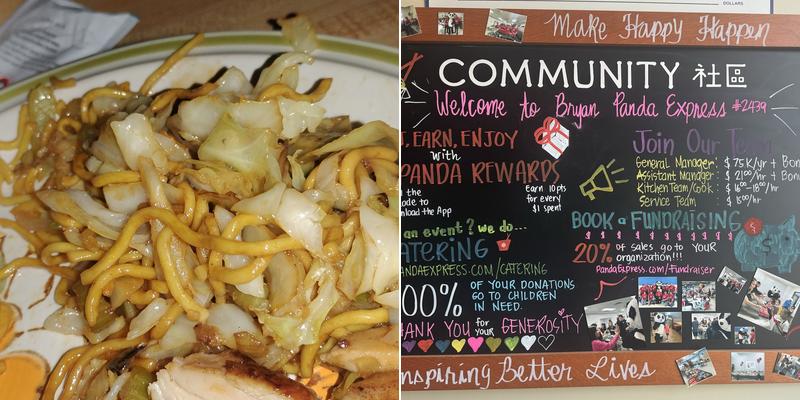 DOLLARS
Make Happy Happen
COMMUNITY 社區
Welcome to Bryan Panda Express #2439
EARN, ENJOY
with
PANDA REWARDS
the
to
load the App
Earn 10pts
for every
$1 spent
Join Our Team
General Manager: $75K/yr + Bonus
Assistant Manager: $21⁰⁰/hr + Bonus
Kitchen Team/Cook: $16⁰⁰-18⁰⁰/hr
Service Team: $15⁰⁰/hr
an event? we do...
CATERING
PANDAEXPRESS.COM/CATERING
BOOK a FUNDRAISING
20% of sales go to YOUR
organization!!!
PandaExpress.com/Fundraiser
00% OF YOUR DONATIONS
GO TO CHILDREN
IN NEED.
THANK YOU for your GENEROSITY
Inspiring Better Lives